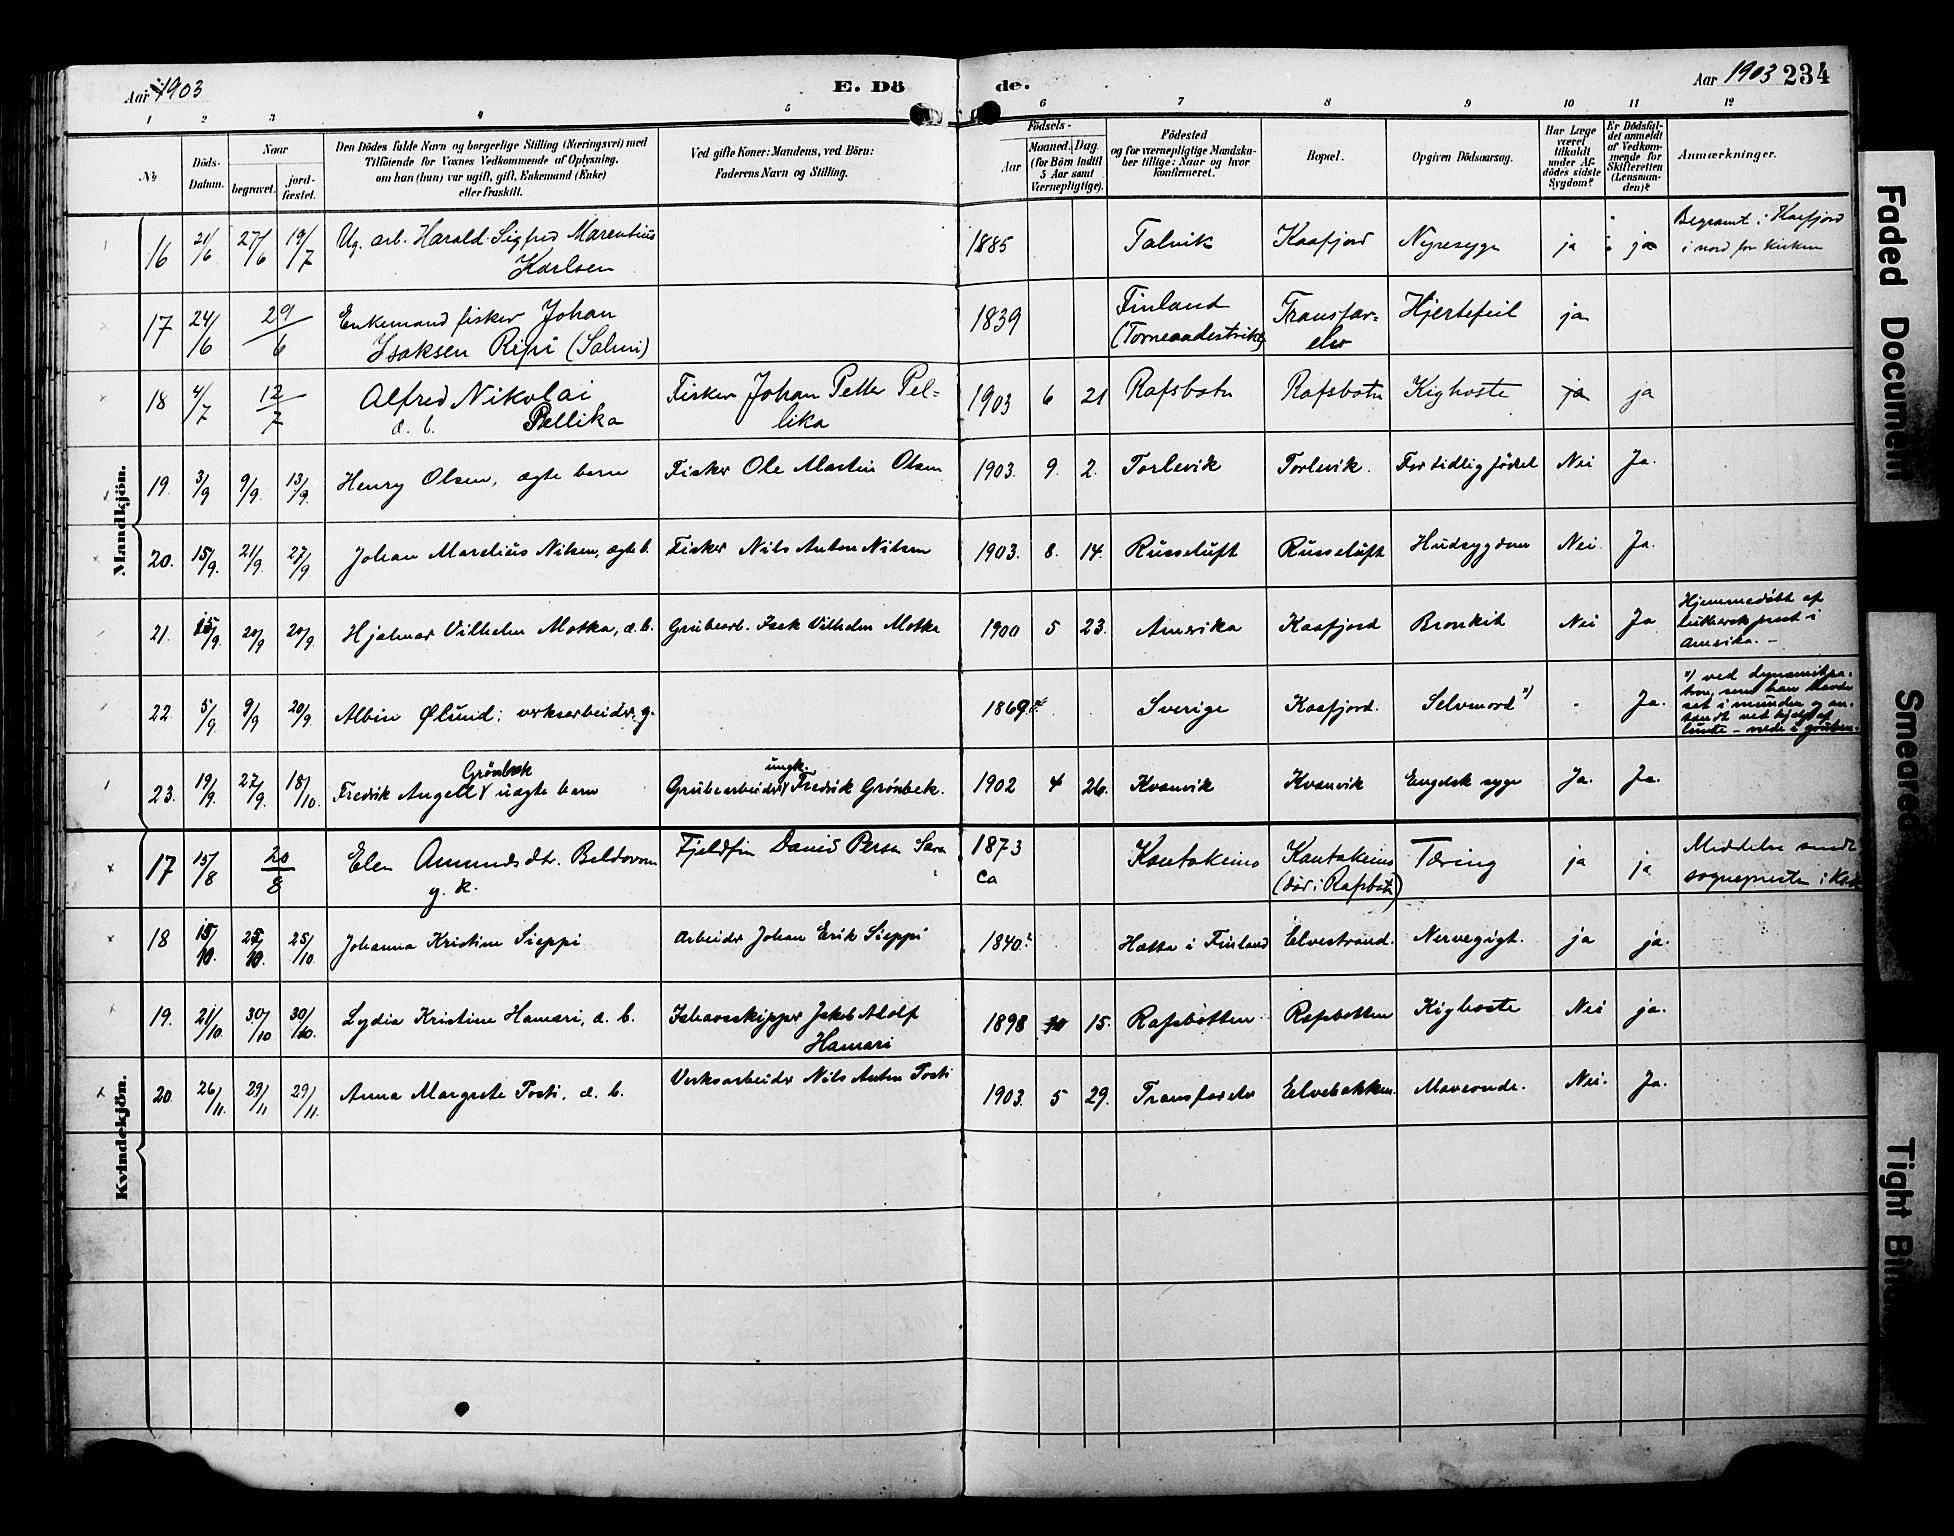 Aar 1903 E. Dö
de. Aar 1903 234
1 2 3 4 5 6 7 8 9 10 11 12
No Döds-Datum. Naar begravet. jord-fæstet. Den Dödes fulde Navn og borgerlige Stilling (Næringsvei) med Tilföiende for Voxnes Vedkommende af Oplysning, om han (hun) var ugift, gift, Enkemand (Enke) eller fraskilt. Ved gifte Koner: Mandens, ved Börn: Faderens Navn og Stilling. Födsels- Aar Maaned. Dag. (for Börn indtil 5 Aar samt Værnepligtige). Födested og for værnepligtige Mandskaber tillige: Naar og hvor konfirmeret. Bopæl. Opgiven Dödsaarsag. Har Læge været tilkaldt under Afdödes sidste Sygdom? Er Dödsfaldet anmeldt af Vedkommende for Skifteretten (Lensmanden)? Anmærkninger.
Mandkjön.
16 21/6 27/6 19/7 Ug. arb. Harald Sigfred Marentius Karlsen 1885 Talvik Kaafjord Nyresyge ja ja Begravet i Kaafjord i nord for kirken
17 24/6 29/6 Enkemand fisker Johan Isaksen Ripi (Salmi) 1839 Finland Transfarelv Hjertefeil ja
18 4/7 12/7 Alfred Nikolai Pellika æ. b. Fisker Johan Petter Pellika 1903 6 21 Rafsbotn Rafsbotn Kighoste ja ja
19. 3/9 9/9. 13/9. Henry Olsen, ægte barn Fisker Ole Martin Olsen 1903. 9. 2. Torlevik Torlevik. For tidlig født Nei Ja.
20. 15/9. 21/9. 27/9 Johan Marelius Nilsen, ægte b. Fisker Nils Anton Nilsen 1903. 8. 14. Russeluft Russeluft Hudsygdom Nei. Ja.
21. 15/9. 20/9 20/9. Hjalmar Vilhelm Motka, æ. b. Grubearb. Isak Vilhelm Motka 1900 5 23. Amerika Kaafjord Bronkit Nei Ja Hjemmedøbt af luthersk prest i Amerika. –
22. 5/9 9/9 20/9 Albin Ølund; verksarbeider, g. 1869 Sverige Kaafjord. Selvmord *) Ja. *) ved dynamitpatron, som han havde sat i munden og antændt ved hjelp af lunte – nede i gruben.
23. 19/9. 27/9. 18/10. Fredrik Angell Grönbek uægte barn Grubearbeider ungk. Fredrik Grönbek. 1902 4 26. Kvænvik Kvænvik Engelsk syge Ja. Ja.
Kvindekjön.
17 15/8 20/8 Elen Amundsdtr. Beldovom g. k. Fjeldfin David Persen Sara 1873 ca Kautokeino Kautokeino (dør i Rafsbotn) Tæring ja ja Meddelse sendt sognepresten i
18 15/10. 25/10. 25/10. Johanna Kristine Sieppi Arbeider Johan Erik Sieppi 1840 Hætta i Finland Elvestrand. Nervegigt. ja ja.
19. 21/10. 30/10 30/10. Lydia Kristine Hamari, æ. b. Ishavsskipper Jakob Adolf Hamari 1898 10 15. Rafsbotten Rafsbotten Kighoste Nei ja.
20 26/11. 29/11 29/11. Anna Margrete Posti, æ. b. Verksarbeider Nils Anton Posti 1903. 5 29. Transfarelv Elvebakken. Maveonde. Nei. Ja.
Faded Document
Smeared
Tight